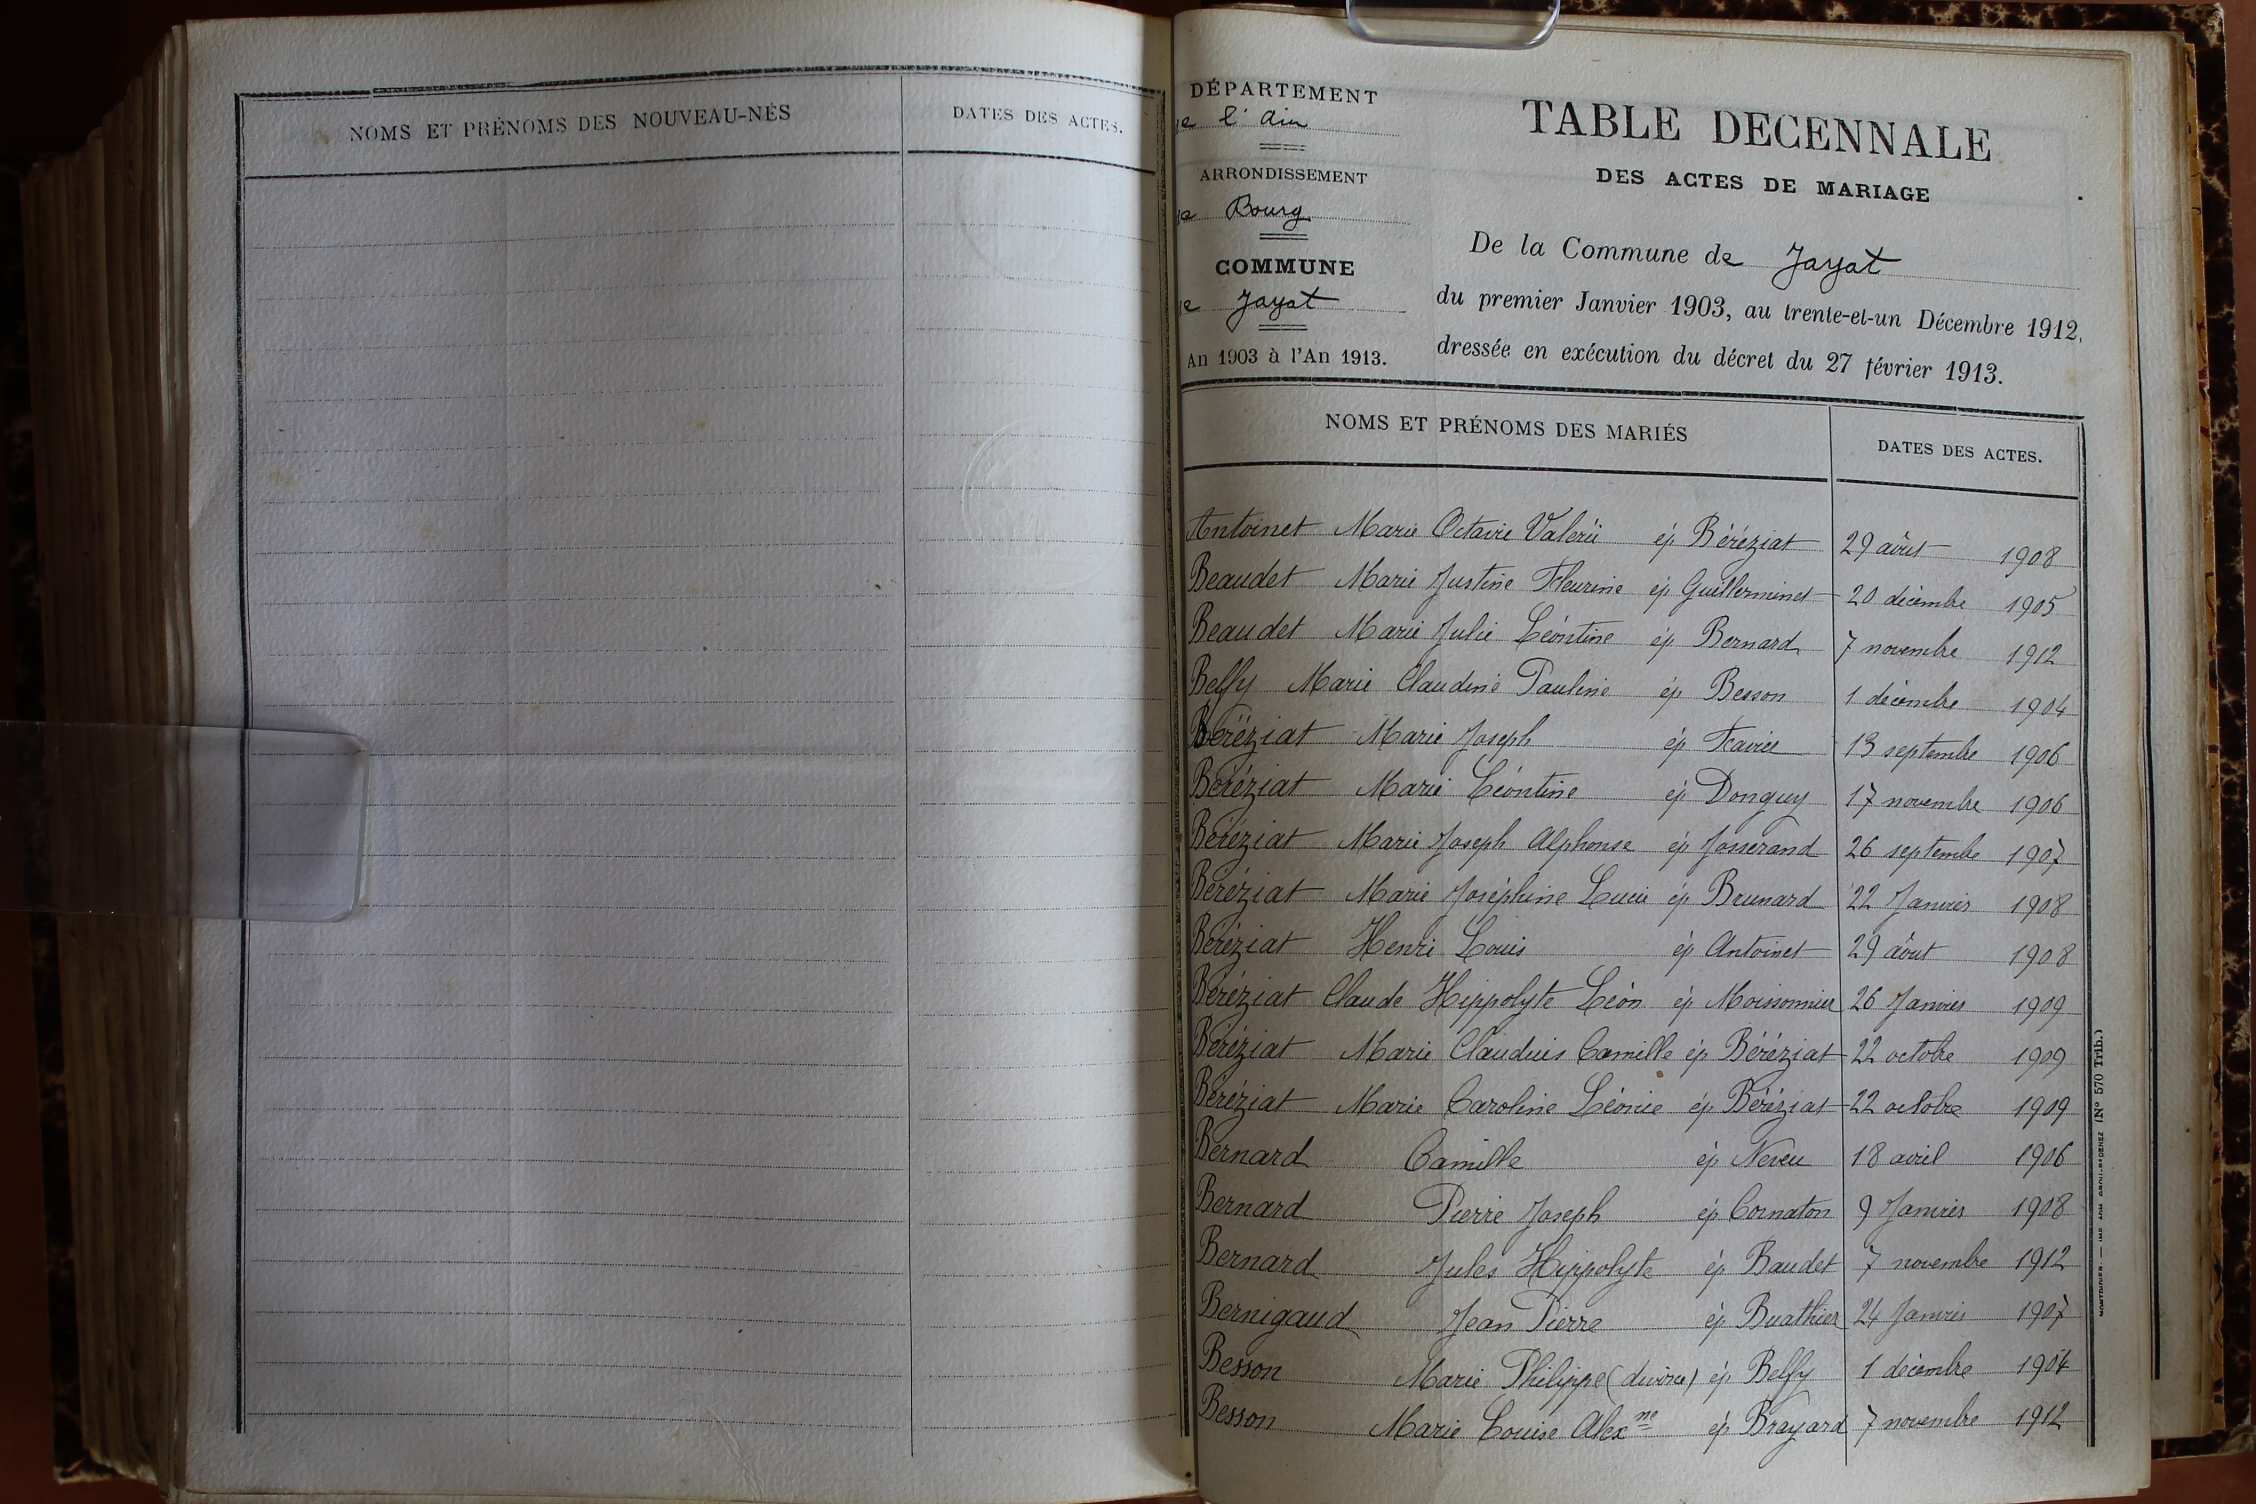 NOMS ET PRÉNOMS DES NOUVEAU-NÉS
DATES DES ACTES.
DÉPARTEMENT
e l'ain
ARRONDISSEMENT
e Bourg
COMMUNE
e Jayat
An 1903 à l'An 1913.
TABLE DECENNALE
DES ACTES DE MARIAGE
De la Commune de Jayat
du premier Janvier 1903, au trente-et-un Décembre 1912,
dressée en exécution du décret du 27 février 1913.
NOMS ET PRÉNOMS DES MARIÉS
DATES DES ACTES.
Antoinet Marie Octavie Valérie ép Béréziat 29 août 1908
Beaudet Marie Justine Fleurine ép Guillerminet 20 décembre 1905
Beaudet Marie Julie Léontine ép Bernard 7 novembre 1912
Belfy Marie Claudine Pauline ép Besson 1 décembre 1904
Béréziat Marie Joseph ép Favier 13 septembre 1906
Béréziat Marie Léontine ép Donguy 17 novembre 1906
Béréziat Marie Joseph Alphonse ép Josserand 26 septembre 1907
Béréziat Marie Joséphine Lucie ép Brunard 22 Janvier 1908
Béréziat Henri Louis ép Antoinet 29 août 1908
Béréziat Claude Hippolyte Léon ép Moissonnier 26 Janvier 1909
Béréziat Marie Claudius Camille ép Béréziat 22 octobre 1909
Béréziat Marie Caroline Léonie ép Béréziat 22 octobre 1909
Bernard Camille ép Neveu 18 avril 1906
Bernard Pierre Joseph ép Cornaton 9 Janvier 1908
Bernard Jules Hippolyte ép Baudet 7 novembre 1912
Bernigaud Jean Pierre ép Buathier 24 Janvier 1907
Besson Marie Philippe (divorcé) ép Belfy 1 décembre 1904
Besson Marie Louise Alexne ép Brayard 7 novembre 1912
(N° 570 Trib.)